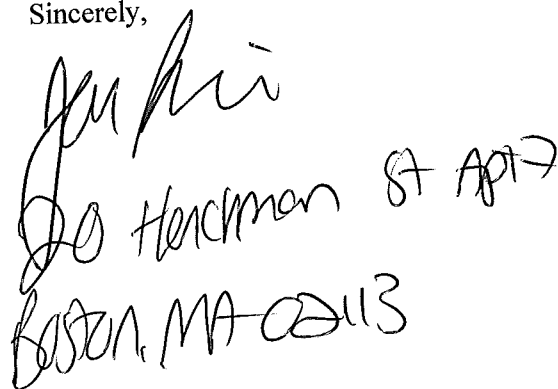 Sincerely,
20 Henchman St Apt 7
Boston, MA 02113